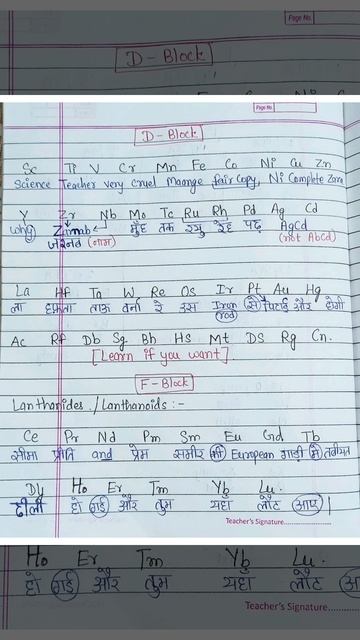 Page No.
D-Block
Page No.
D-Block
Sc Ti V Cr Mn Fe Co Ni Cu Zn
Science Teacher very cruel Maange fair Copy, Ni Complete Zara
Y Zr Nb Mo Tc Ru Rh Pd Ag Cd
Why Zainab मुँह तक रखु रह पढ़ AgCd
जैनब (नाम) (not AbCd)
La Hf Ta W Re Os Ir Pt Au Hg
ला हफ्ता ताऊ वर्ना रे उस Iron से पिटाई और होगी
(rod)
Ac Rf Db Sg Bh Hs Mt DS Rg Cn.
[Learn if you want]
F-Block
Lanthanides /Lanthanoids :-
Ce Pr Nd Pm Sm Eu Gd Tb
सीमा प्रीति and प्रेम समीर की European गाड़ी में तबीयत
Dy Ho Er Tm Yb Lu.
ढीली हो गई और तुम यहा लौट आए।
Teacher's Signature
Ho Er Tm Yb Lu.
हो गई और तुम यहा लौट
Teacher's Signature